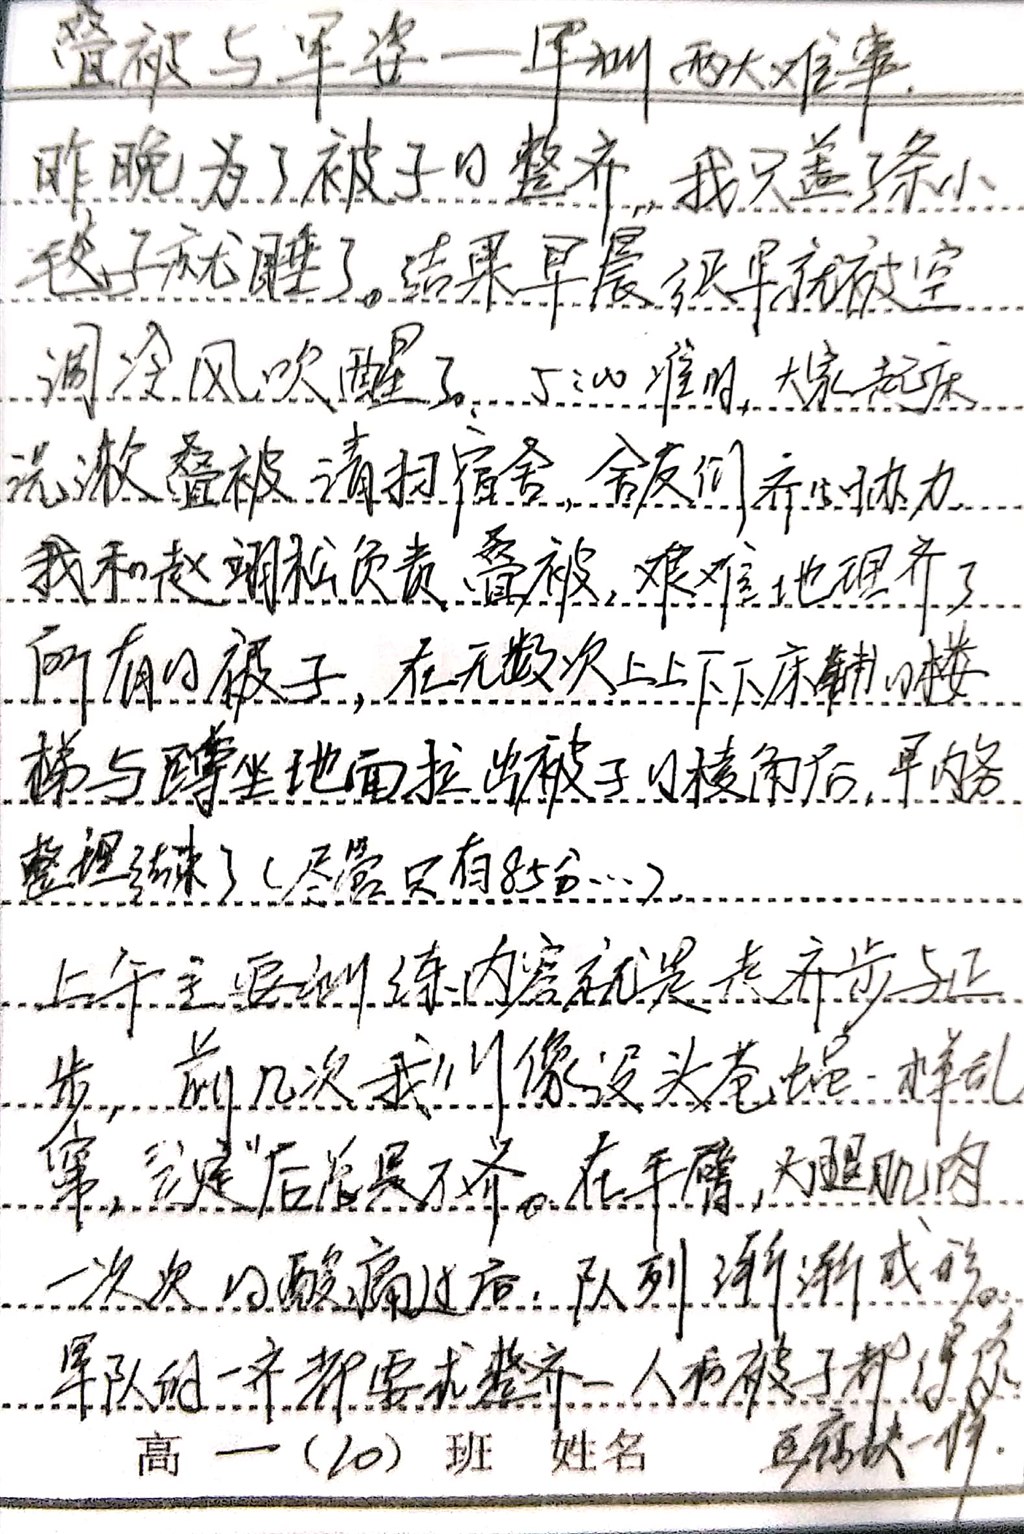 叠被与军姿——军训两大难事.
昨晚为了被子的整齐,我只盖了条小
毯子就睡了。结果早晨很早就被空
调冷风吹醒了。5:00准时,大家起床
洗漱叠被清扫宿舍,舍友们齐心协力.
我和赵翊松负责叠被,艰难地理齐了
所有的被子,在无数次上上下下床铺的楼
梯与蹲坐地面拉出被子的棱角后,早内务
整理结束了(尽管只有85分…).
上午主要训练内容就是走齐步与正
步,前几次我们像没头苍蝇一样乱
窜,"立定"后总是不齐。在手臂,大腿肌肉
一次次的酸痛过后.队列渐渐成形。
军队的一齐都要求整齐—人和被子都得像
豆腐块一样.
高一(10)班 姓名